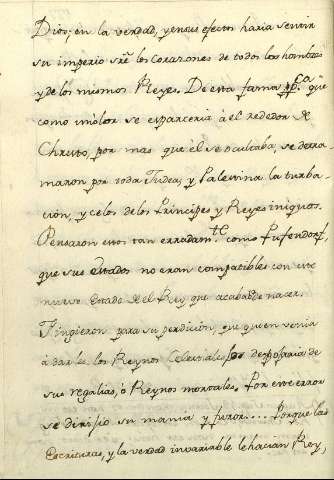 Dios, en la verdad, y en sus efectos haria sentir
su imperio sre los corazones de todos los hombres
y de los mismos Reyes. De esta fama ppca que
como un olor se esparceria à el rededor de
Christo, por mas que èl se ocultaba, se derra
maron por toda Judea, y Palestina la turba-
cion, y celos de los Principes y Reyes iniquos.
Pensaron estos tan erradamte como Pufendorf,
que sus estados no eran compatibles con este
nuevo Estado de el Rey que acababa de nacer.
Fingieron para su perdicion, que quien venia
à dar los Reynos Celestiales, los despojaria de
sus regalias, ò Reynos mortales. Por este error
se dirigio su mania y furor.... Porque las
Escrituras, y la verdad invariable le hacian Rey,